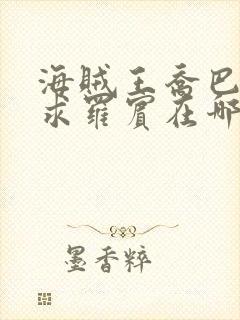 海贼王乔巴
求罗宾在哪
墨香粹